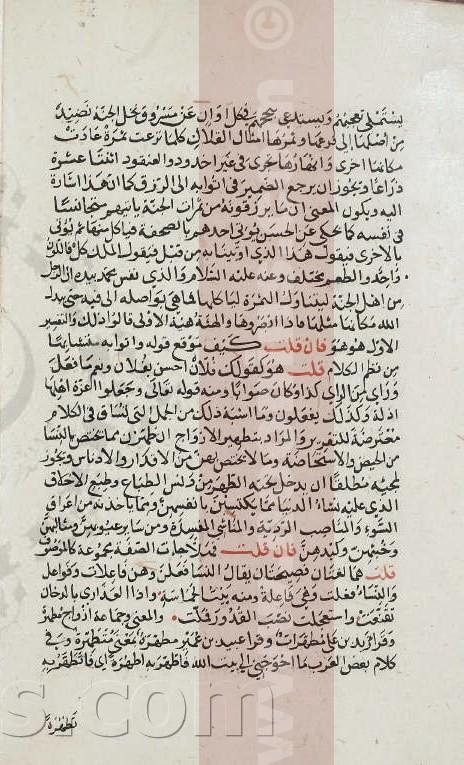 يستملى تعجبهم ويستدعى تبجحهم فى كل اوان عن مسروق ونخل الجنة نضيد
من اصلها الى فرعها وثمرها امثال القلال كلما نزعت ثمرة عادت
مكانها اخرى وانهارها تجرى فى غير اخدود والعنقود اثنتا عشرة
ذراعا ويجوز ان يرجع الضمير فى اتوا به الى الرزق كما ان هذا اشارة
اليه ويكون المعنى ان ما يرزقونه من ثمرات الجنة ياتيهم متجانسا
فى نفسه كما يحكى عن الحسن يوتى احدهم بالصحفة فياكل منها ثم يوتى
بالاخرى فيقول هذا الذى اوتينا به من قبل فيقول الملك كل فاللون
واحد والطعم مختلف وعنه عليه السلام والذى نفس محمد بيده ان الرجل
من اهل الجنة ليتناول الثمرة لياكلها فما هى بواصلة الى فيه حتى يبدل
الله مكانها مثلها فاذا ابصروها والهيئة هيئة الاولى قالوا ذلك والتفسير
الاول هو هو فان قلت كيف موقع قوله واتوا به متشابها
من نظم الكلام قلت هو كقولك فلان احسن بفلان ونعم ما فعل
وراى من الراى كذا وكان صوابا ومنه قوله تعالى وجعلوا اعزة اهلها
اذلة وكذلك يفعلون وما اشبه ذلك من الجمل التى تساق فى الكلام
معترضة للتقرير والمراد بتطهير الازواج ان طهرن مما يختص بالنسا
من الحيض والاستحاضة وما لا يختص بهن من الاقذار والادناس ويجوز
لمجيه مطلقا ان يدخل تحته الطهر من دنس الطباع وطبع الاخلاق
الذى عليه نساء الدنيا مما يكتسبن بانفسهن ومما ياخذنه من اعراق
السوء والمناصب الردية والمناشى المفسدة ومن ساير عيوبهن ومثالبهن
وخبثهن وكيدهن فان قلت فهلا جات الصفة مجموعة كالموصوف
قلت هما لغتان فصيحتان يقال النسا فعلن وهن فاعلات وفواعل
والنساء فعلت وهى فاعلة ومنه بيت الحماسة واذا العذارى بالدخان
تقنعت واستعجلت نصب القدور فملت والمعنى وجماعة ازواج مطهرة
وقرا زيد بن على مطهرات وقرا عبيد بن عمير مطهرة بمعنى متطهرة وفى
كلام بعض العرب ما احوجنى الى بيت الله فاطهر به اطهرة اى فاتطهر به
تطهرة
s.com
©